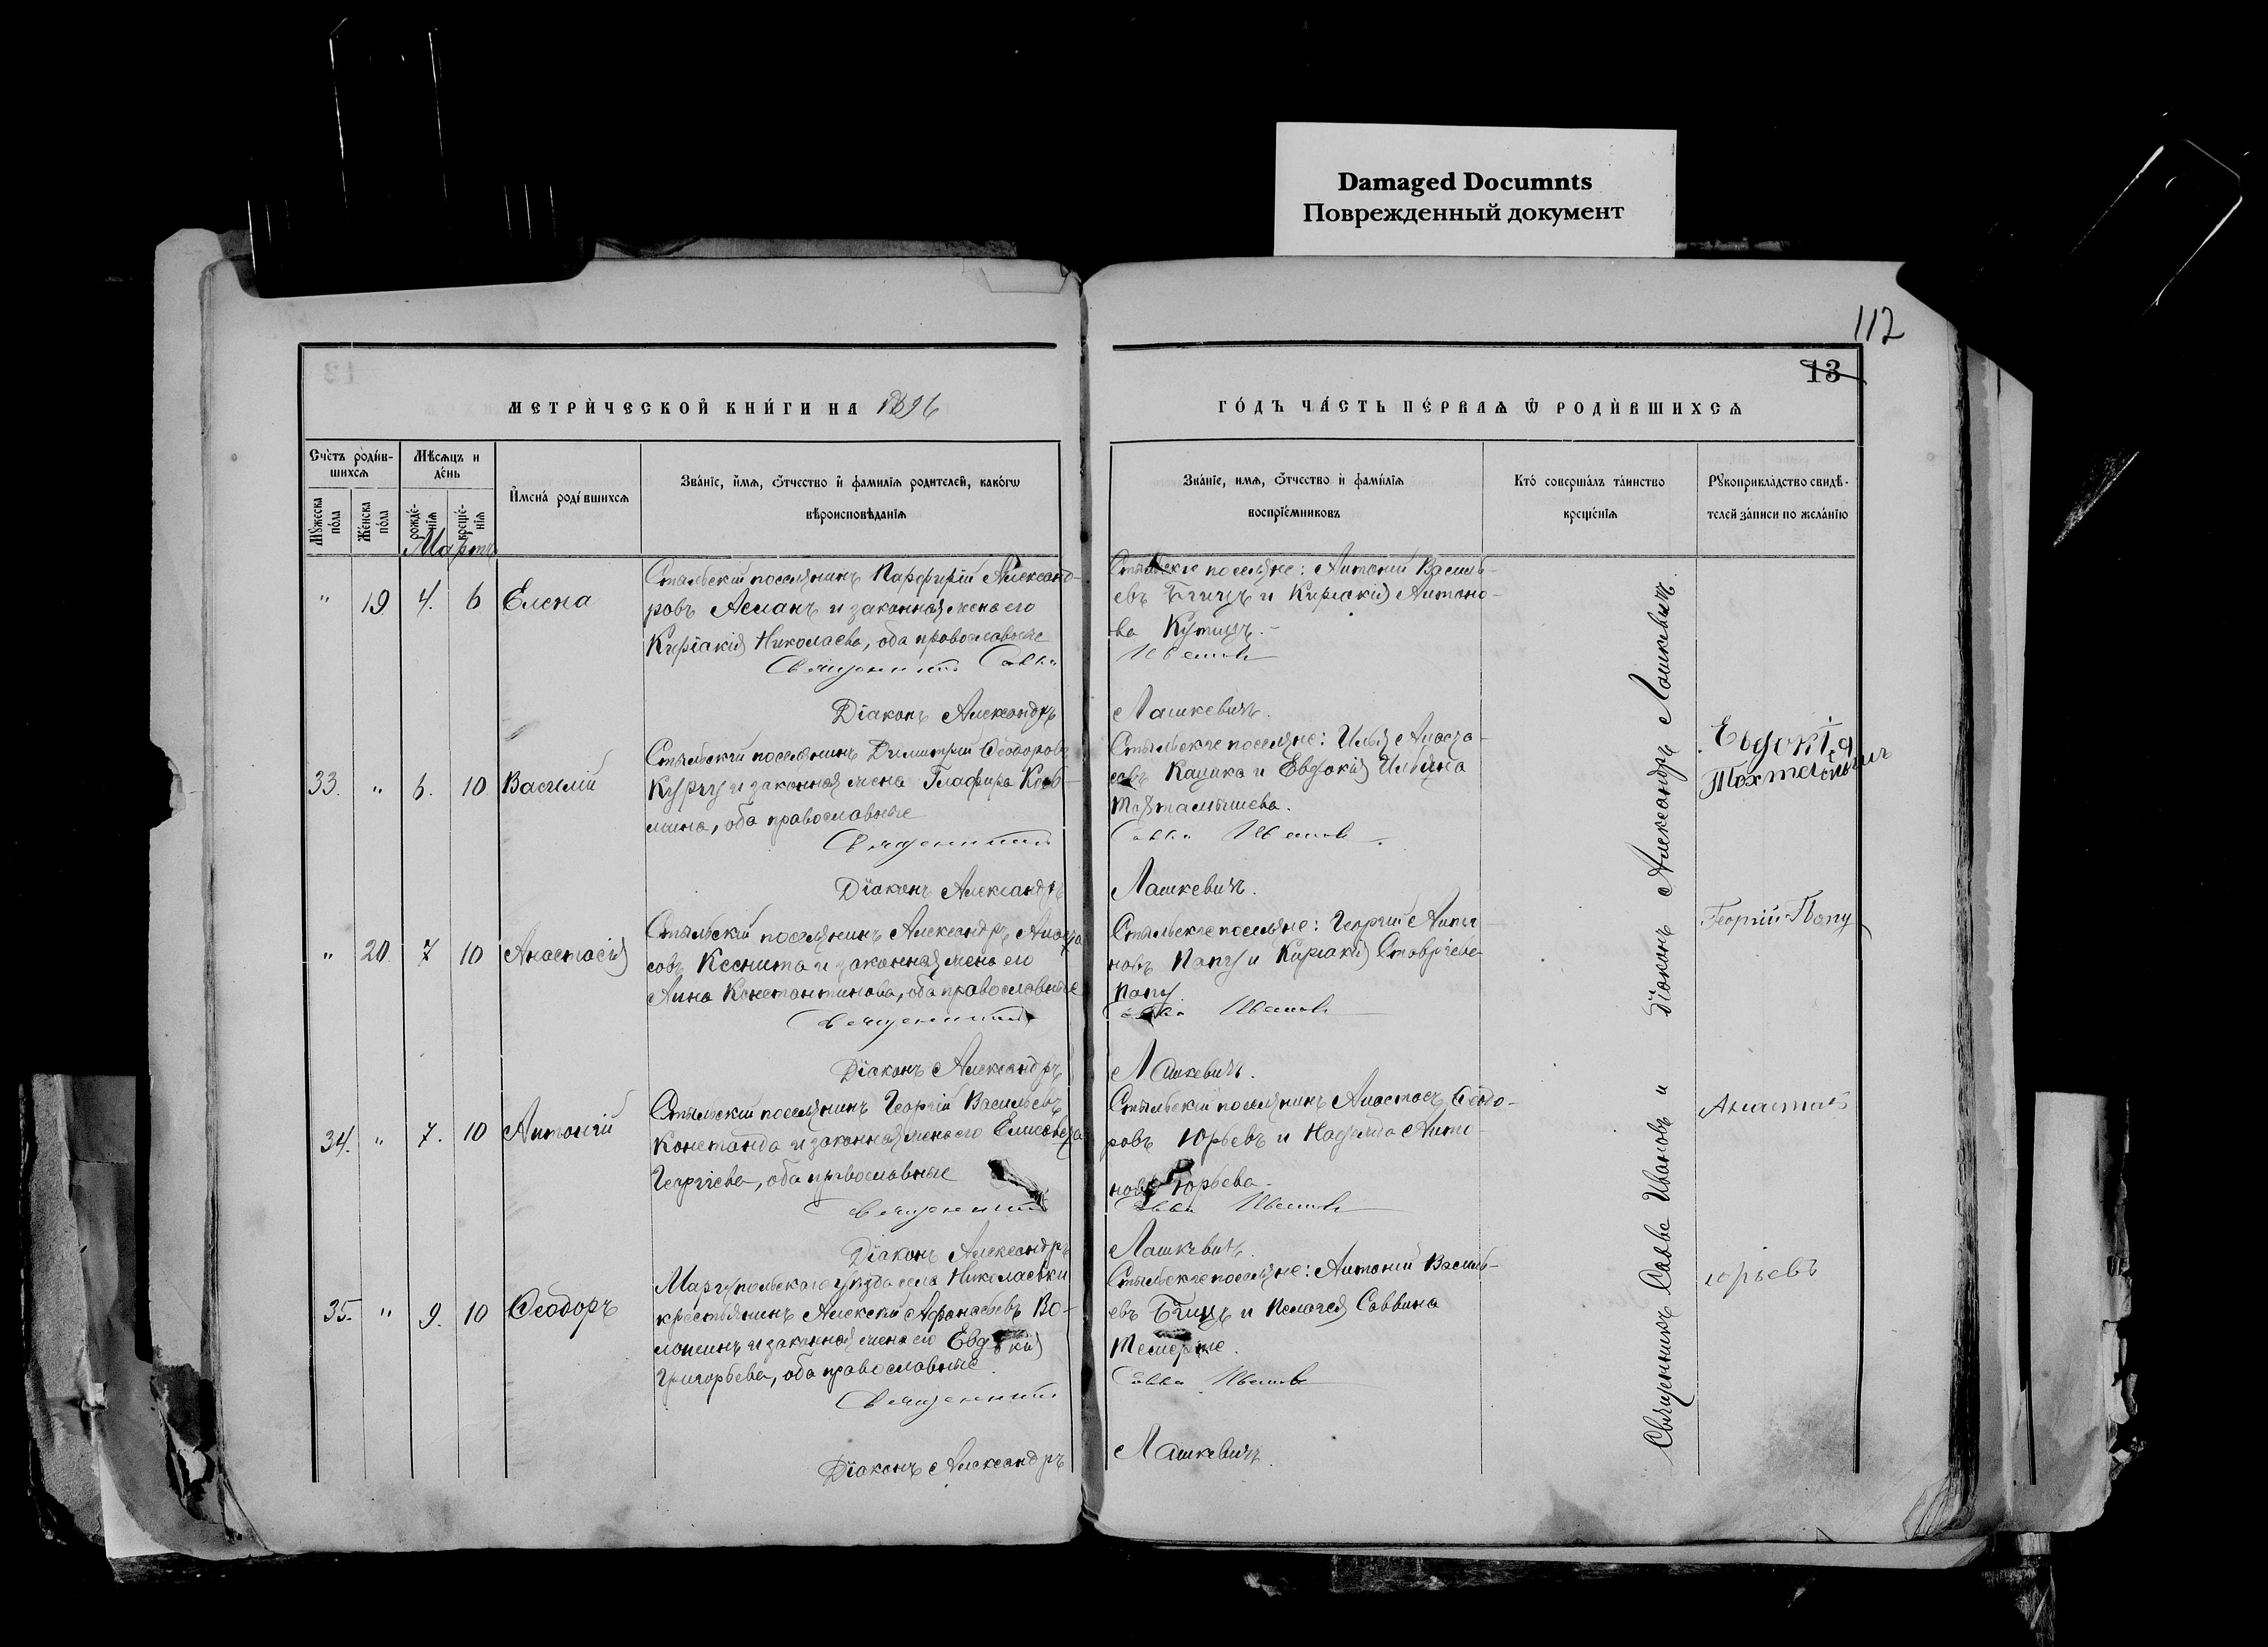 Damaged Documnts
Поврежденный документ
112
13
МЕТРИ́ЧЕСКОЙ КНИ́ГИ НА 1896
ГО́ДЪ ЧА́СТЬ ПЕ́РВАѦ Ѿ РОДИ́ВШИХСѦ
Сче́тъ роди́в-
шихсѧ
Мꙋ́жеска
по́ла
Же́нска
по́ла
Мѣ́сѧцъ и
де́нь
рожде́-
нїѧ
креще́-
нїѧ
И҆мена̀ роди́вшихсѧ
Зва́нїе, и҆́мѧ, ѻ҆́тчество и҆ фами́лїѧ роди́телей, како́гѡ
вѣроисповѣ́данїѧ
Зва́нїе, и҆́мѧ, ѻ҆́тчество и҆ фами́лїѧ
воспрїе́мниковъ
Кто̀ соверша́лъ та́инство
креще́нїѧ
Рꙋкоприкла́дство свидѣ́-
телей за́писи по жела́нїю
Мартъ
" 19 4. 6 Елена
Стыльскій поселянинъ Парфирій Александ-
ровъ Асланъ и законная жена его
Кирiакія Николаева, оба православные
Священникъ Савва
Діаконъ Александръ
Стыльскіе поселяне: Антоній Василь-
евъ и Киріакія Антоно-
ва
Ивановъ
Лашкевичъ.
33. " 6. 10 Василій
Стыльскій поселянинъ Димитрій Ѳеодоровъ
и законная жена Глафира Косв-
мина, оба православные
Священникъ
Діаконъ Александръ
Стыльскіе поселяне: Илья Анаста-
совъ и Евдокія Ильина
Тохтамышева.
Савва Ивановъ
Лашкевичъ.
Евдокія
" 20. 7 10 Анастасія
Стыльскій поселянинъ Александръ Анаста
совъ и законная жена его
Анна Константинова, оба православные
Священникъ
Діаконъ Александръ
Стыльскіе поселяне: Георгій Анти-
новъ Папу и Киріакія Ставріева
Папу.
Савва Ивановъ
Лашкевичъ.
Георгій Попу
34. " 7. 10 Антоній
Стыльскій поселянинъ Георгій Васильевъ
Константа и законная жена его Елисавета
Георгіева, оба православные
Священникъ
Діаконъ Александръ
Стыльскій поселянинъ Анастасъ Ѳеодо-
ровъ Юрьевъ и Надежда Анто-
нова Юрьева.
Савва Ивановъ
Лашкевичъ.
Анастасъ
35. " 9. 10 Ѳеодоръ
Маріупольскаго уѣзда села Николаевки
крестьянинъ Алексѣй Афанасьевъ Во-
лошинъ и законная жена его Евдокія
Григорьева, оба православные.
Священникъ
Діаконъ Александръ
Стыльскіе поселяне: Антоній Василь-
евъ и Пелагея Саввина
Темерже.
Савва Ивановъ
Лашкевичъ.
юрьевъ
Священникъ Савва Ивановъ и Діаконъ Александръ Лашкевичъ.